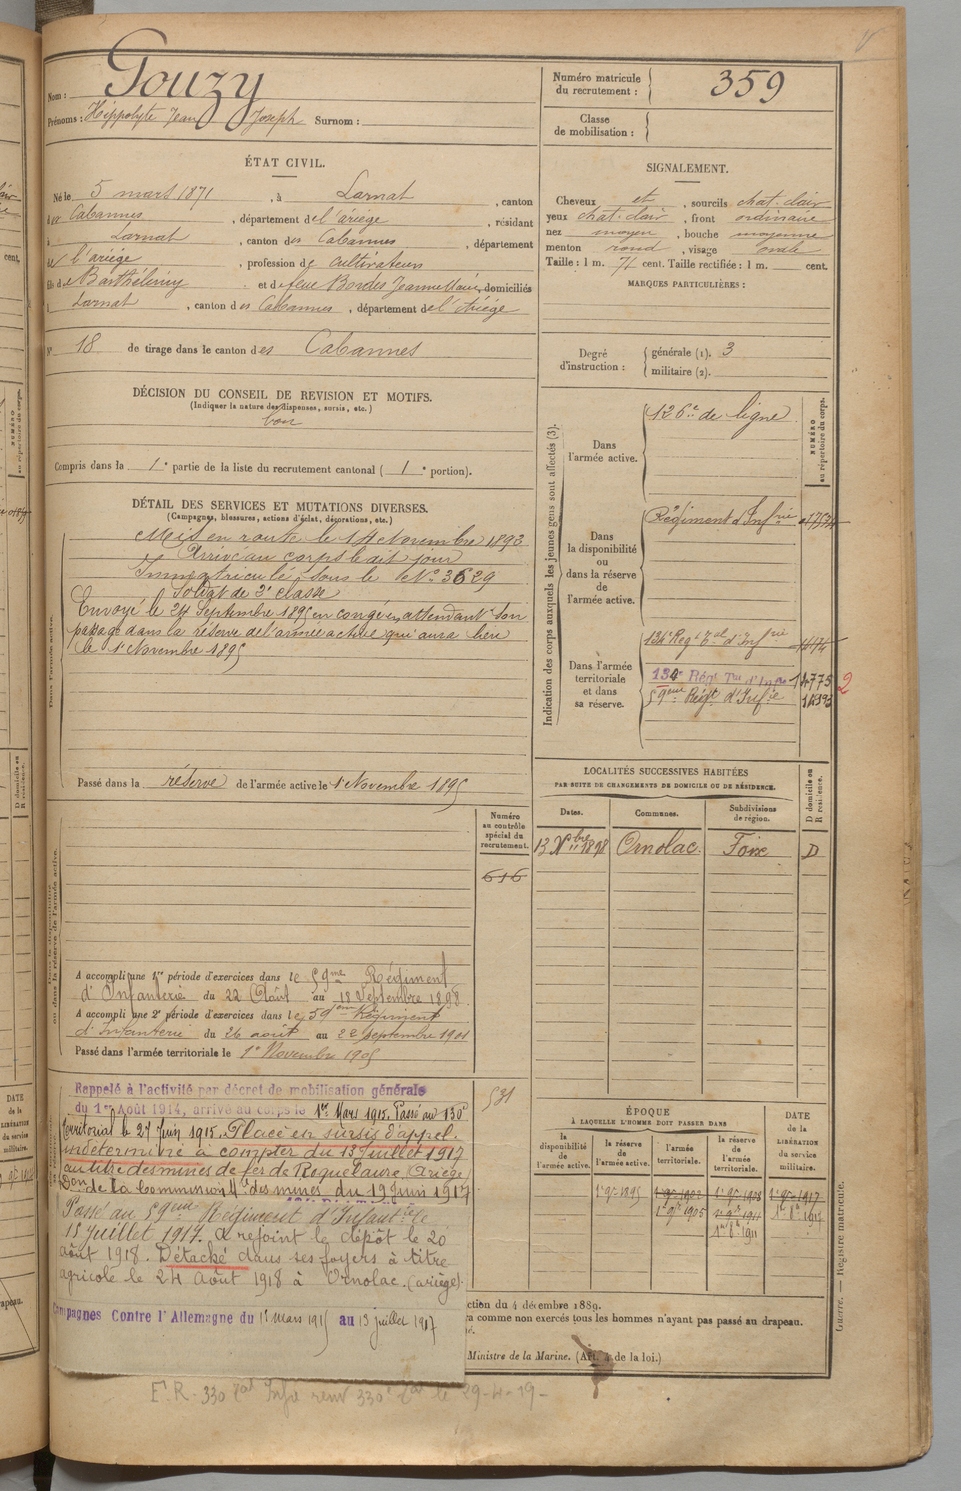 Nom : Gouzy
Prénoms : Hippolyte Jean Joseph Surnom :
Numéro matricule du recrutement : 359
Classe de mobilisation :
ÉTAT CIVIL.
Né le 5 mars 1871, à Larnat, canton
des Cabannes, département de l'ariège, résidant
à Larnat, canton des Cabannes, département
de l'ariège, profession de cultivateur
fils de Barthélemy et de feue Bordes Jeanne Marie, domiciliés
à Larnat, canton des Cabannes, département de l'Ariége
N° 18 de tirage dans le canton des Cabannes
SIGNALEMENT.
Cheveux et, sourcils chat. clair
yeux chat. clair, front ordinaire
nez moyen, bouche moyenne
menton rond, visage ovale
Taille : 1 m. 71 cent. Taille rectifiée : 1 m. cent.
MARQUES PARTICULIÈRES :
Degré d'instruction : générale (1). 3
militaire (2).
DÉCISION DU CONSEIL DE REVISION ET MOTIFS.
(Indiquer la nature des dispenses, sursis, etc.)
bon
Compris dans la 1e partie de la liste du recrutement cantonal ( 1e portion).
DÉTAIL DES SERVICES ET MUTATIONS DIVERSES.
(Campagnes, blessures, actions d'éclat, décorations, etc.)
Mis en route le 14 Novembre 1892
Arrivé au corps le dit jour
Immatriculé sous le No 3629
Soldat de 2e classe
Envoyé le 24 Septembre 1895 en congé en attendant son
passage dans la réserve de l'armée active qui aura lieu
le 1er Novembre 1895
Passé dans la réserve de l'armée active le 1er Novembre 1895
Indication des corps auxquels les jeunes gens sont affectés (3).
NUMÉRO au répertoire du corps.
Dans l'armée active. 126e de ligne
Dans la disponibilité ou dans la réserve de l'armée active.
Régiment d'Infrie
Dans l'armée territoriale et dans sa réserve.
134e Regt Tal d'Infrie
134e Régt Tal d'Infie 14775 2
59eme Régt d'Infie
LOCALITÉS SUCCESSIVES HABITÉES
PAR SUITE DE CHANGEMENTS DE DOMICILE OU DE RÉSIDENCE.
Dates. Communes. Subdivisions de région. D domicile ou R résidence.
13 Xbre 1898 Ornolac. Foix D
Numéro au contrôle spécial du recrutement.
616
A accompli une 1re période d'exercices dans le 59me Régiment
d'Infanterie du 22 Août au 18 Septembre 1898
A accompli une 2e période d'exercices dans le 59eme Régiment
d'Infanterie du 26 août au 22 Septembre 1901
Passé dans l'armée territoriale le 1er Novembre 1905
531
Rappelé à l'activité par décret de mobilisation générale
du 1er Août 1914, arrivé au corps le 1er Mars 1915. Passé au 130e
territorial le 27 Juin 1915. Placé en sursis d'appel.
indéterminé à compter du 13 Juillet 1917
au titre des mines de fer de Roquelaure, (Ariège)
Don de la Commission Mle des mines du 19 Juin 1917
Passé au 59eme Régiment d'Infanterie le
15 Juillet 1917. A rejoint le dépôt le 20
août 1918. Détaché dans ses foyers à titre
agricole le 24 Août 1918 à Ornolac. (ariège).
Campagnes Contre l'Allemagne du 1er Mars 1915 au 13 juillet 1917
ÉPOQUE
À LAQUELLE L'HOMME DOIT PASSER DANS
la disponibilité de l'armée active.
la réserve de l'armée active.
l'armée territoriale.
la réserve de l'armée territoriale.
DATE de la LIBÉRATION du service militaire.
1er 9bre 1895
1er 9bre 1905
ction du 4 décembre 1889.
ra comme non exercés tous les hommes n'ayant pas passé au drapeau.
Ministre de la Marine. (Art. 4 de la loi.)
Guerre. — Registre matricule.